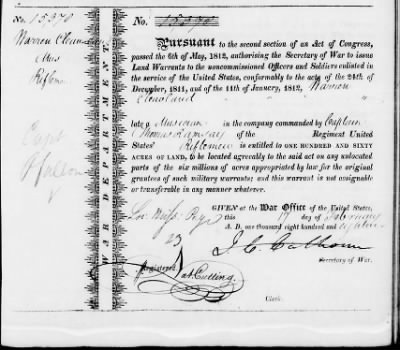 No. 15970
Warren Cleaveland
Mus
Riflemen
Capt
WAR DEPARTMENT.
No. 15970
Pursuant to the second section of an Act of Congress,
passed the 6th of May, 1812, authorising the Secretary of War to issue
Land Warrants to the noncommissioned Officers and Soldiers enlisted
in the service of the United States, conformably to the acts of the 24th of
December, 1811, and of the 11th of January, 1812, Warren
Cleaveland
late a Musician in the company commanded by Captain
Thomas Ramsay of the Regiment United
States' Riflemen is entitled to ONE HUNDRED AND SIXTY
ACRES OF LAND, to be located agreeably to the said act on any unlocated
parts of the six millions of acres appropriated by law for the original
grantees of such military warrants; and this warrant is not assignable
or transferable in any manner whatever.
GIVEN at the War Office of the United States,
this 17 day of February
A. D. one thousand eight hundred and eighteen
23
J. C. Calhoun
Secretary of War.
Registered
Nat Cutting
Clerk.